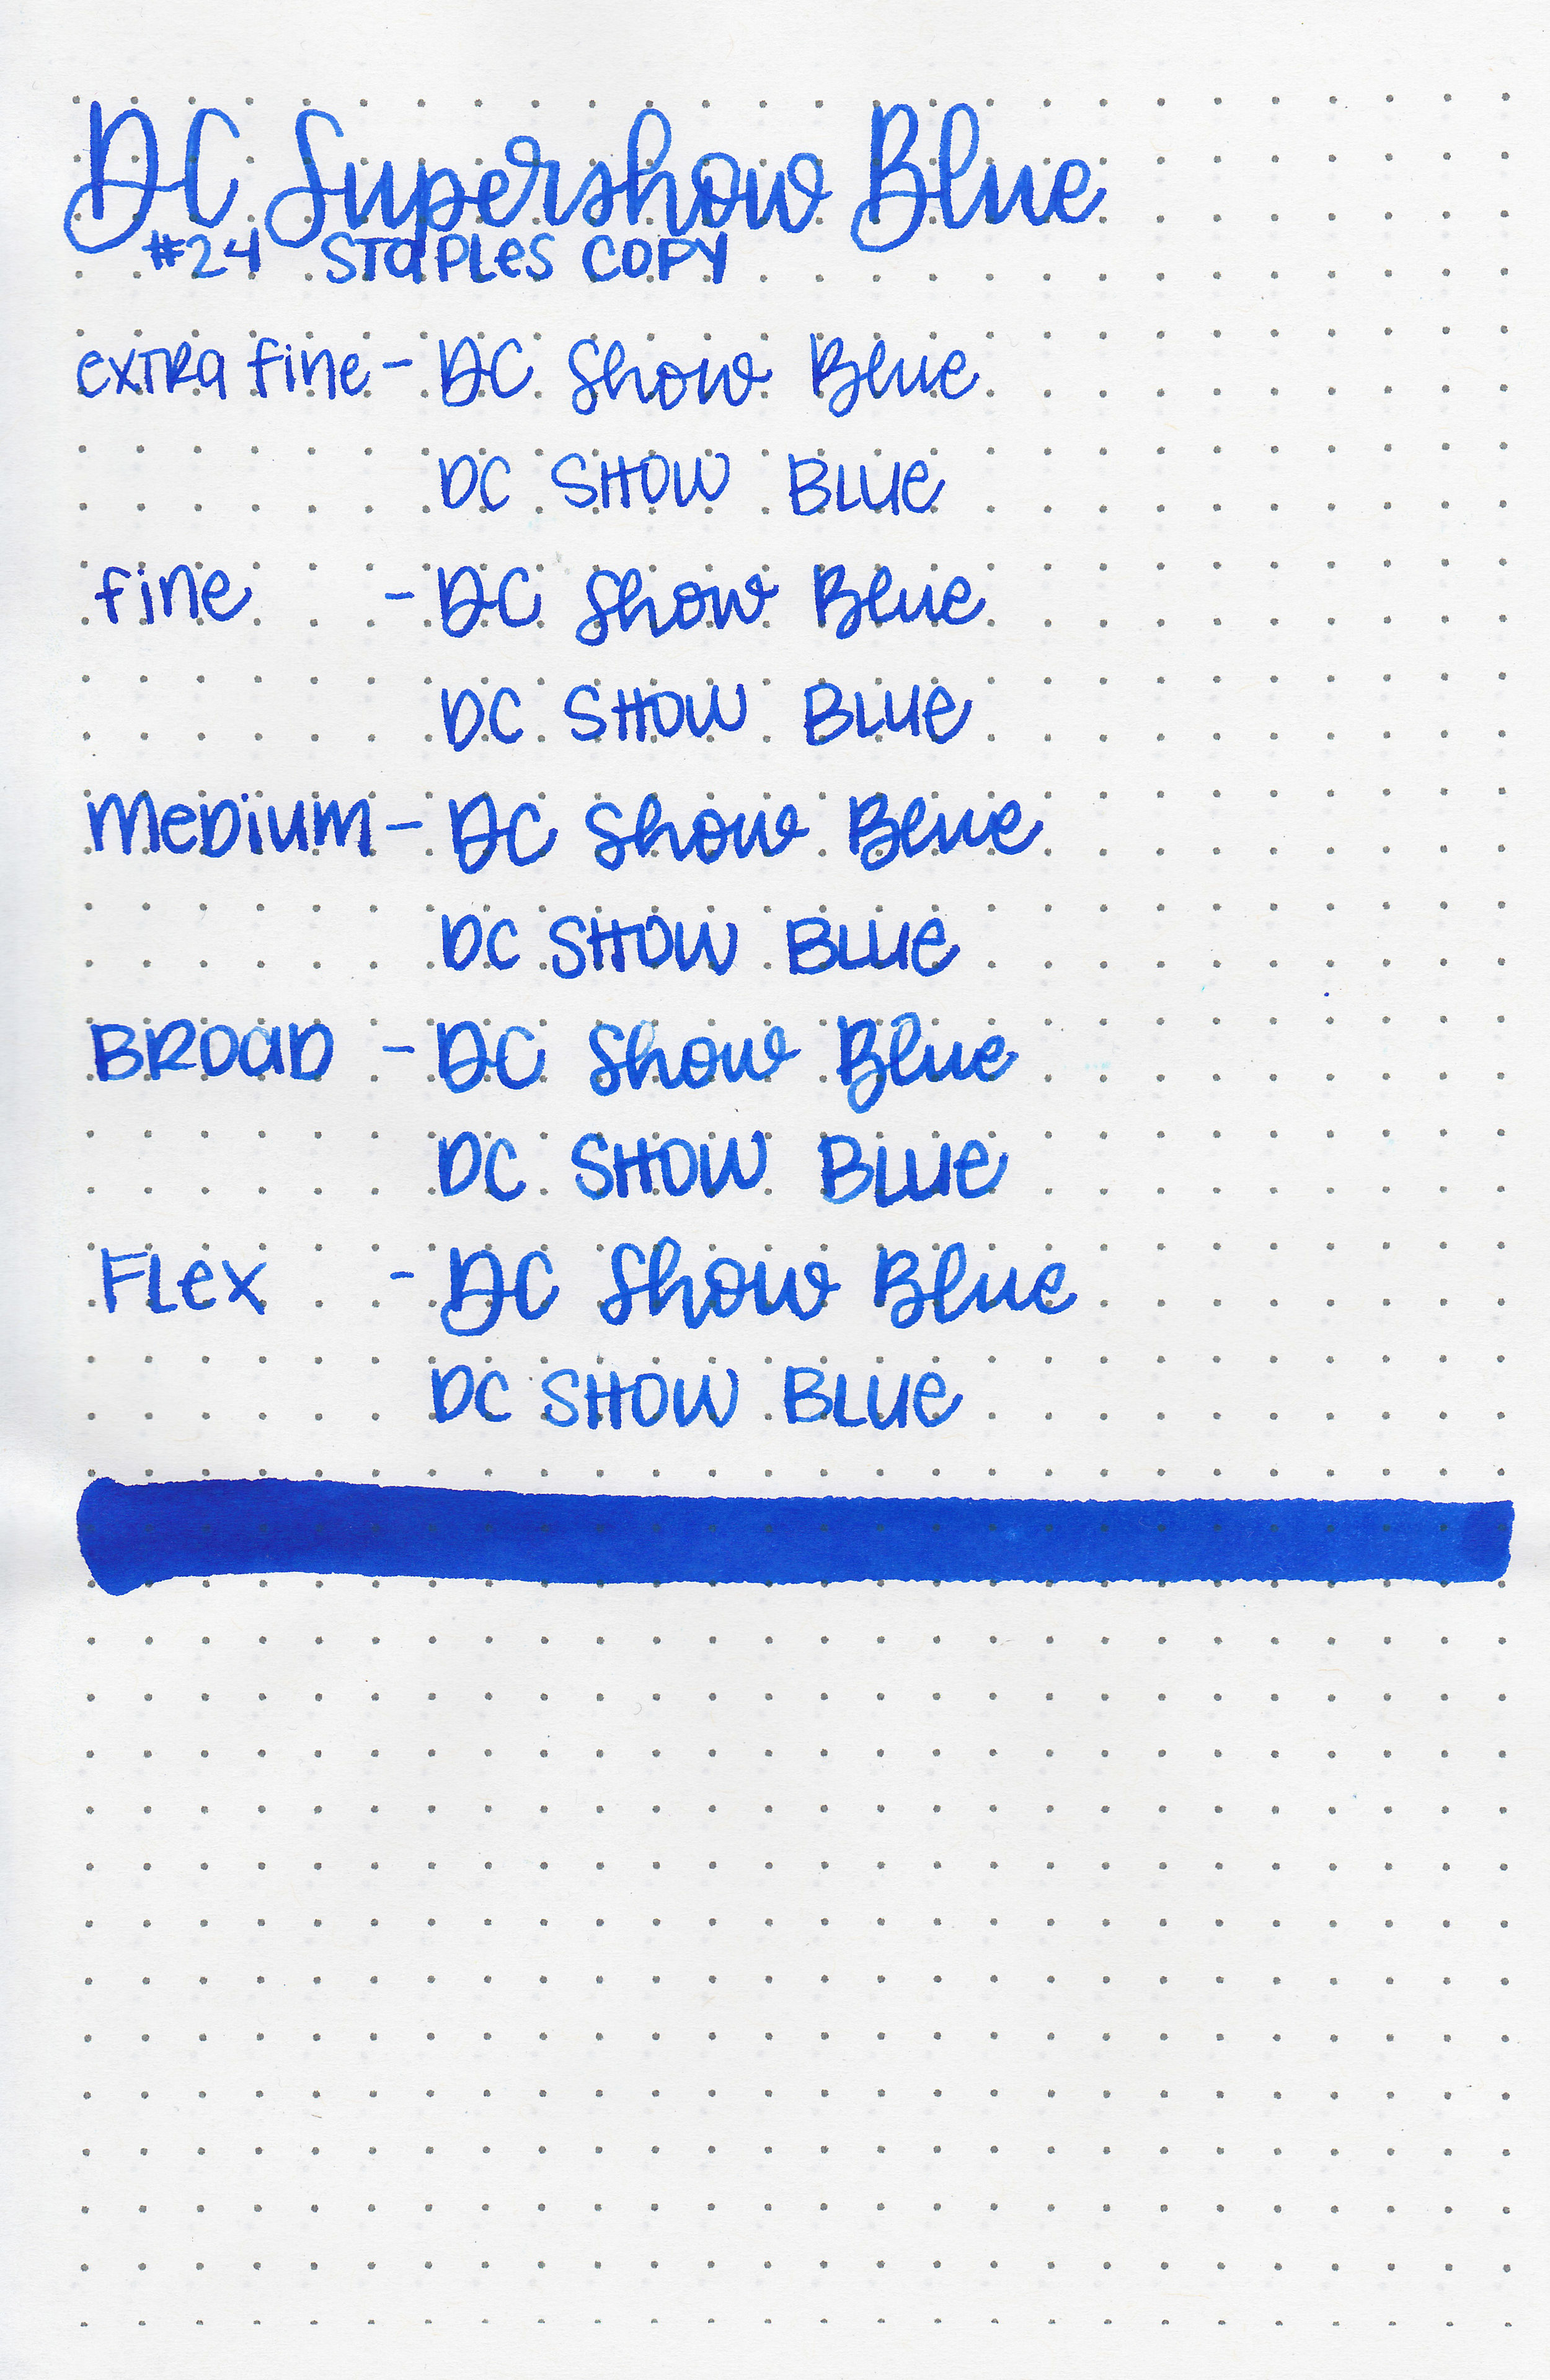 DC Supershow Blue
#24 STaPLes COPY
exTRa fine - DC Show Blue
DC SHOW BLUe
fine - DC Show Blue
DC SHOW BLUe
MeDiuM - DC Show Blue
DC SHOW BLUe
BROaD - DC Show Blue
DC SHOW BLUe
FLex - DC Show Blue
DC SHOW BLUe